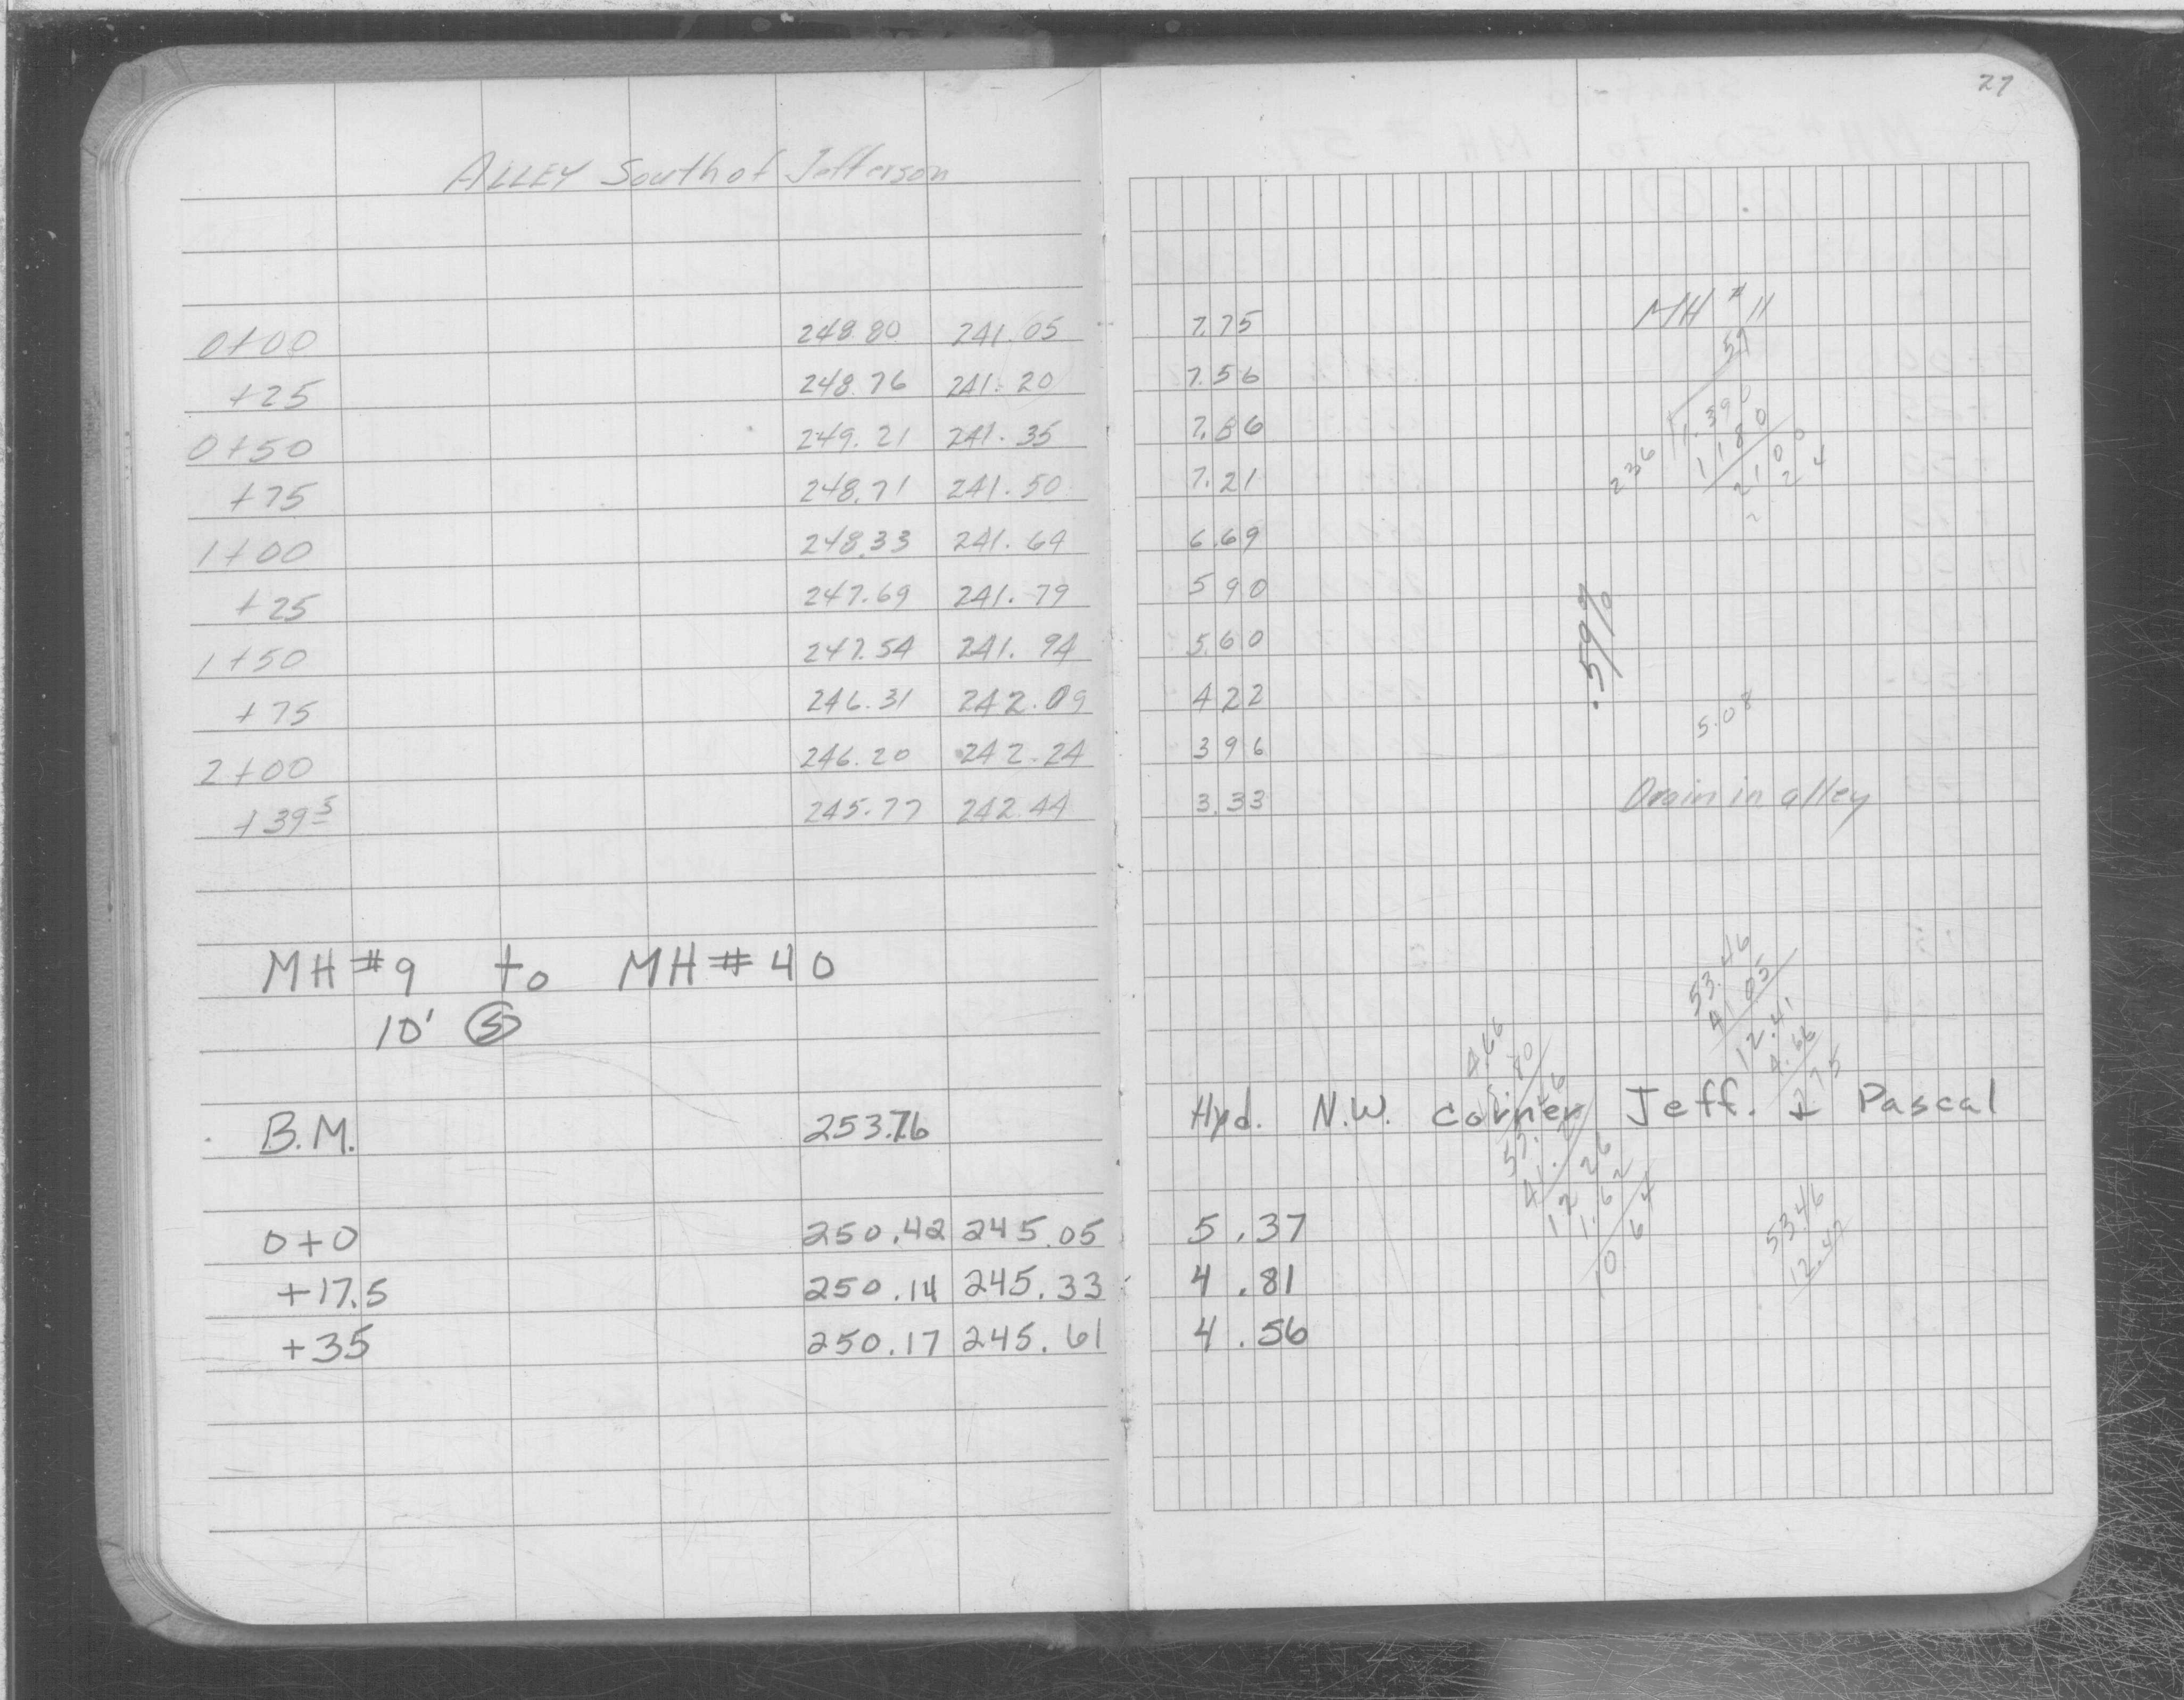 27
ALLEY South of Jefferson
0+00 248.80 241.05 7.75 MH #11
+25 248.76 241.20 7.56
0+50 249.21 241.35 7.86
+75 248.71 241.50 7.21
1+00 248.33 241.64 6.69
+25 247.69 241.79 5 90 .59%
1+50 247.54 241.94 5.60
+75 246.31 242.09 4 22 5.08
2+00 246.20 242.24 3 96
+39 5 245.77 242.44 3.33 Drain in alley
MH #9 to MH #40
10' S
B.M. 253.76 Hyd. N.W. corner Jeff. & Pascal
0+0 250.42 245.05 5.37
+17.5 250.14 245.33 4.81
+35 250.17 245.61 4.56
59
236 1.390
1180
2100
2 4
53.46
41 05
12.41
4.66
7 75
12 26
1.62
10 64
53.46
12.42